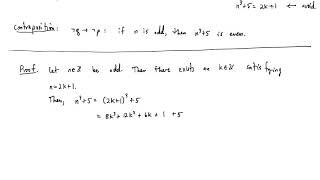 n³+5 = 2k+1 ← avoid
Contraposition: ¬q → ¬p : if n is odd, then n³+5 is even.
Proof. Let n∈ℤ be odd. Then there exists an k∈ℤ satisfying
n=2k+1.
Then, n³+5 = (2k+1)³+5
= 8k³+12k²+6k+1 +5